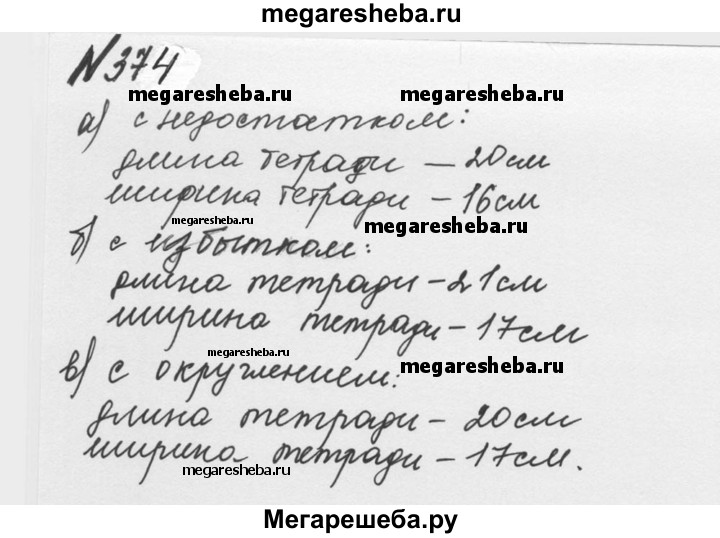 megaresheba.ru
№374
megaresheba.ru megaresheba.ru
а) с недостатком:
длина тетради — 20 см
ширина тетради – 16 см
megaresheba.ru megaresheba.ru
б) с избытком:
длина тетради – 21 см
ширина тетради – 17 см
megaresheba.ru megaresheba.ru
в) с округлением:
длина тетради – 20 см
ширина тетради – 17 см.
megaresheba.ru
Мегарешеба.ру